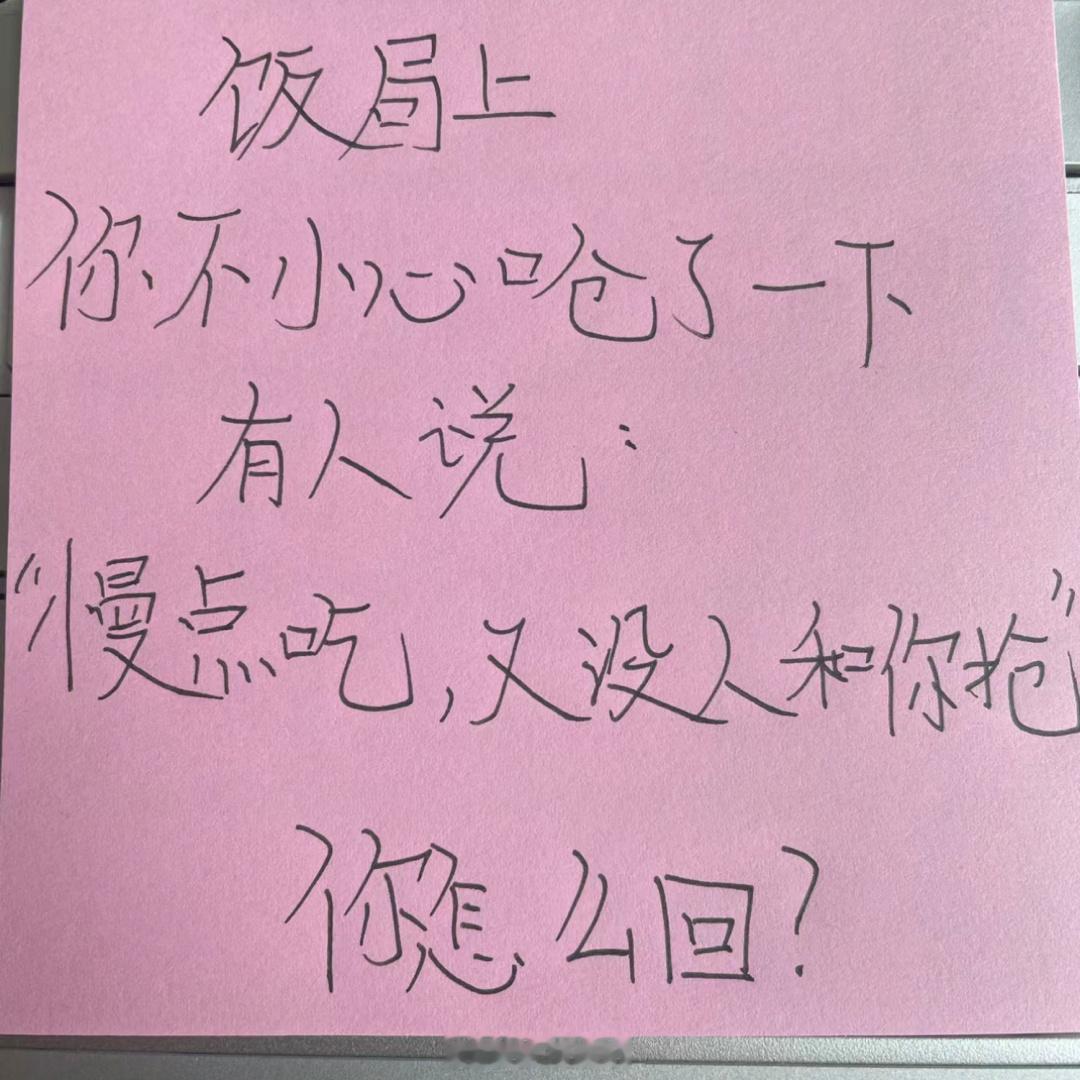 饭局上
你不小心呛了一下
有人说：
“慢点吃，又没人和你抢”
你怎么回？